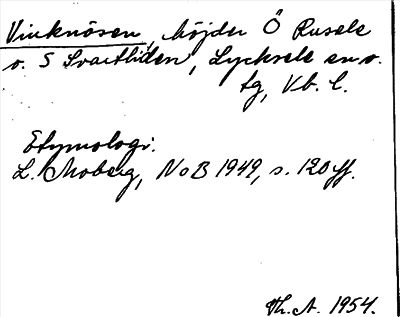 Vinknösen, höjder Ö Rusele
o. S Svartliden, Lycksele sn o.
tg, Vb. l.
Etymologi:
L. Moberg, NoB 1949, s. 120 ff.
Th. A. 1954.